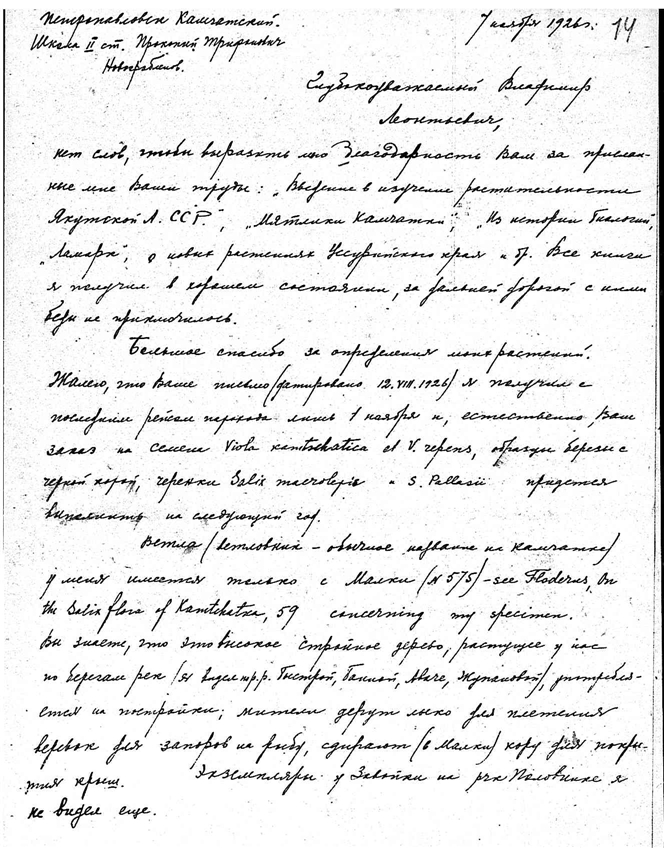 Петропавловск Камчатский.
7 ноября 1926 г.
14
Школа II ст. Прокопий Трифонович
Новограбленов.
Глубокоуважаемый Владимир
Леонтьевич,
нет слов, чтобы выразить мою благодарность Вам за прислан-
ные мне Ваши труды: "Введение в изучение растительности
Якутской А. ССР.", "Мятлики Камчатки", "Из истории биологии",
"Ламарк", о новых растениях Уссурийского края и др. Все книги
я получил в хорошем состоянии, за дальней дорогой с ними
беды не приключилось.
Большое спасибо за определения моих растений.
Жалею, что Ваше письмо (датировано 12.VIII.1926) я получил с
последним рейсом парохода лишь 1 ноября и, естественно, Ваш
заказ на семена Viola kamtschatica et V. repens, образцы березы с
черной корой, черенки Salix macrolepis и S. Pallasii придется
выполнить на следующий год.
Ветла (ветловник – обычное название на Камчатке)
у меня имеется только с Малки (N 575) – see Floderus, On
the Salix flora of Kamtchatka, 59 concerning my specimen.
Вы знаете, что это высокое стройное дерево, растущее у нас
по берегам рек (я видел по р.р. Быстрой, Банной, Аваче, Жупановой), употребля-
ется на постройки; жители дерут лыко для плетения
веревок для запоров на рыбу, сдирают (в Малки) кору для покры-
тия крыш. Экземпляры у Завойки на рчк Половинке я
не видел еще.